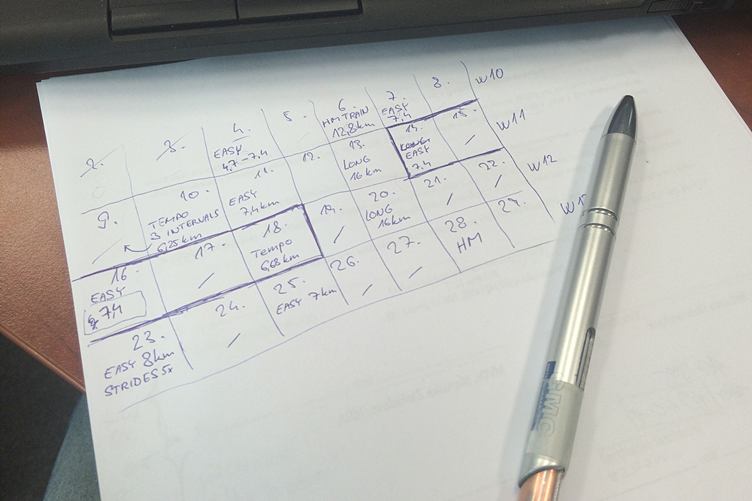 2. 3. 4. 5. 6 7. 8. W10
EASY
4,7.-7,4
HM TRAIN
12,8km
EASY
7,4
9. 10. 11. 12. 13. 14. 15. W11
TEMPO
3 INTERVALS
6,25km
EASY
7,4km
LONG
16 km
LONG
EASY
7,4
/
16. 17. 18. 19. 20. 21. 22. W12
EASY
7,4
/
TEMPO
6,68km
/
LONG
16km
/
/
23. 24. 25. 26. 27. 28. 29.
EASY 8km
STRIDES 5x
/
EASY 7km
/
/
HM